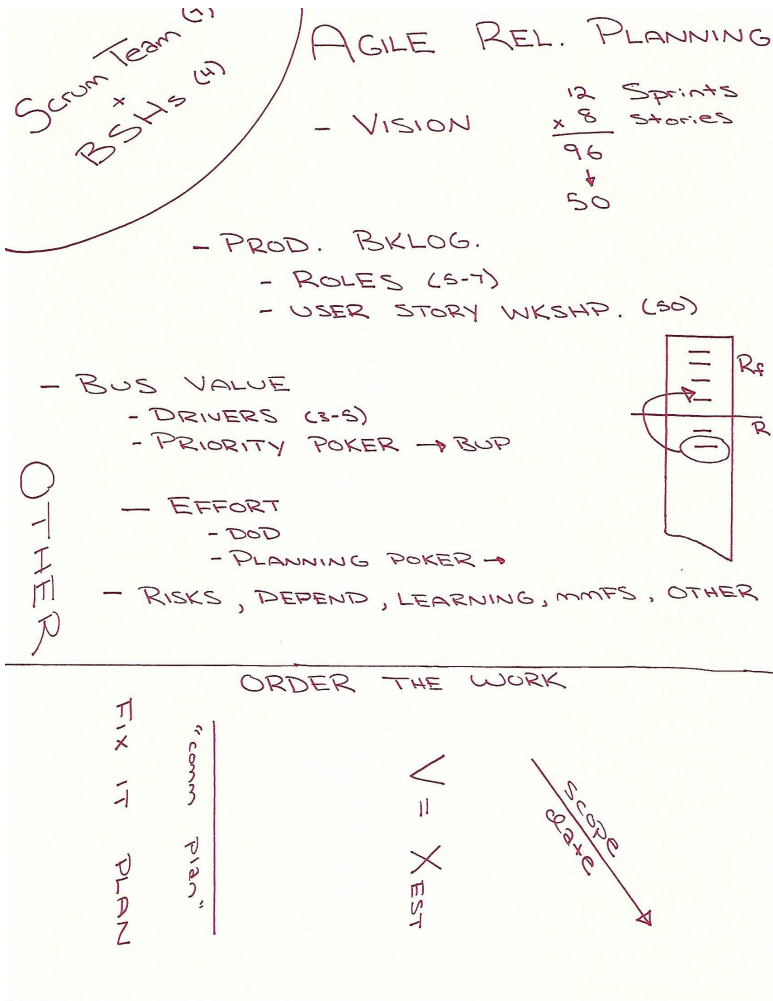 Scrum Team
+
BSHs (4)
AGILE REL. PLANNING
- VISION
12 Sprints
x 8 Stories
96
↓
50
- PROD. BKLOG.
- ROLES (5-7)
- USER STORY WKSHP. (50)
- BUS VALUE
- DRIVERS (3-5)
- PRIORITY POKER → BUP
- EFFORT
- DOD
- PLANNING POKER →
- RISKS, DEPEND, LEARNING, MMFS, OTHER
OTHER
Rf
R
ORDER THE WORK
FIX IT PLAN
"comm plan"
V = X EST
scope
date